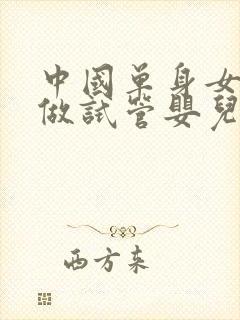 中國單身女
做試管嬰兒
西方來